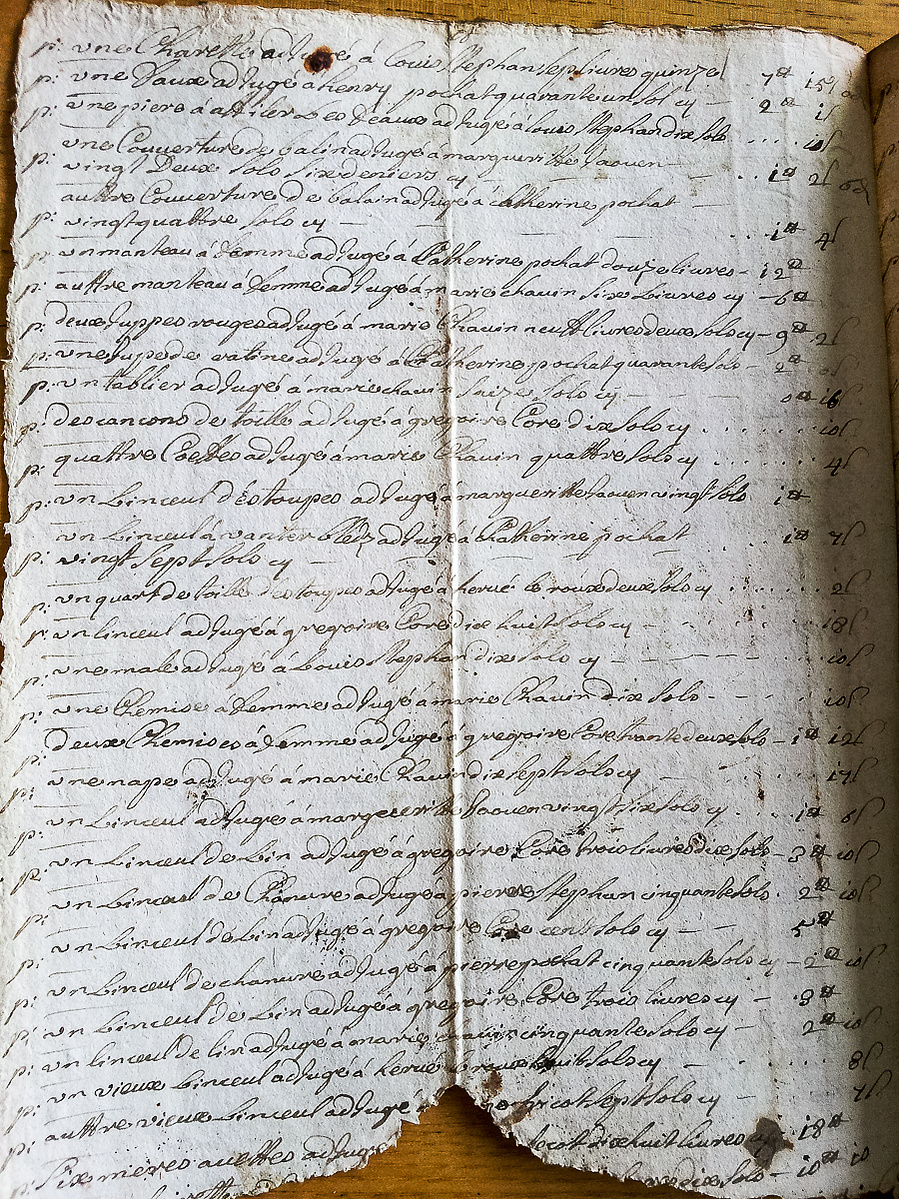 p: une Charette adjugé à Louis Stephan sept livres quinze s 7# 15s
p: une Daux adjugé à henry pochat quarante un sol cy — 2# 1s
p: une piere à éguiser Les d'eaux adjugé a louis Stephan dix solo .... 10s
une Couverture de balin adjugé à margueritte Saouen
p: vingt Deux solo six deniers cy — 1# 2s 6d
auttre Couverture de balain adjugé à Catherine pochat
p: vingt quattre solo cy — 1# 4s
p: un manteau à femme adjugé à Catherine pochat douze livres - 12#
p: auttre manteau à femme adjugé à marie chauin six Livres cy - 6#
p: deux juppes rouges adjugé à marie Chauin neuff livres deux solo cy - 9# 2s
p: une jupe de ratine adjugé à Catherine pochat quarante solo - 2# 0s
p: un tablier adjugé a marie chauin saize solo cy — 0# 16s
p: des cancons de toille adjugé à gregoire Core dix solo cy .... 10s
p: quattre Coeffes adjugé à marie Chauin quattre solo cy .... 4s
p: un Linceul d'étoupes adjugé à margueritte Saouen vingt solo 1#
un Linceul à vanter bledz adjugé à Catherine pochat . 1# 7s
p: vingt sept solo cy —
p: un quart de toille d'etoupes adjugé à hervé le roux deux solo cy .... 2s
p: un linceul adjugé à gregoire Core dix huit solo cy - .... 18s
p: une male adjugé à Louis Stephan dix solo cy — 10s
p: une Chemise a femme adjugé à marie Chauin dix solo - 10s
p: deux Chemises à femme adjugé a gregoire Core trante deux solo - 1# 12s
p: une nape adjugé à marie Chauin dix sept solo cy .... 17s
p: un Linceul adjugé à margueritte Saouen vingt six solo cy .. 1# 6s
p: un Linceul de Lin adjugé à gregoire Core trois livres dix solo - 3# 10s
p: un Linceul de Chanure adjugé a pierre Stephan cinquante solo . 2# 10s
p: un Linceul de Lin adjugé à gregoire Core cent solo cy — 5#
p: un Linceul de chanure adjugé a pierre pochat cinquante solo cy - 2# 10s
p: un Linceul de Lin adjugé à gregoire Core trois livres cy — 3#
p: un linceul de lin adjugé à marie chauin cinquante solo cy — 2# 10s
p: un vieux Linceul adjugé à hervé le roux huit solo cy - 8s
p: auttre vieux Linceul adjugé sept solo cy — 7s
p: Six meres auettes adjug dix huit livres cy 18#
dix solo - 10# 10